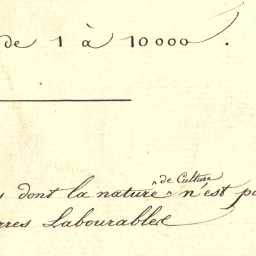 de 1 à 10000.
dont la nature de Culture n'est
Labourables